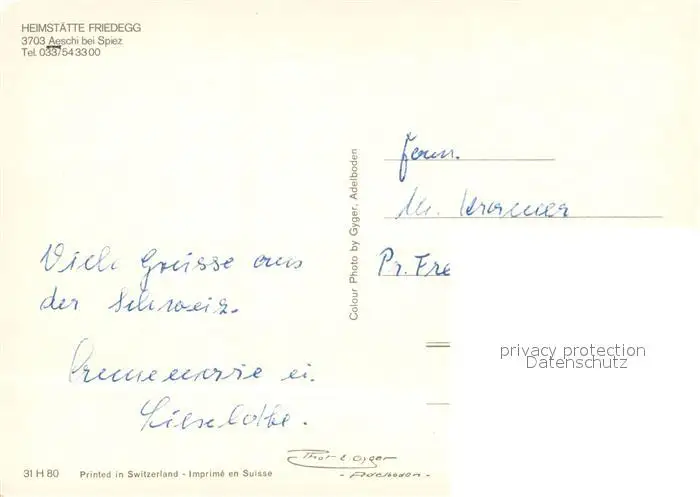 HEIMSTÄTTE FRIEDEGG
3703 Aeschi bei Spiez
Tel. 033/54 33 00
Colour Photo by Gyger, Adelboden
Fam.
M. Kramer
Pr. Fre
Viele Grüsse aus
der Schweiz.
Annemarie u.
Lieselotte.
privacy protection
Datenschutz
31 H 80 Printed in Switzerland - Imprimé en Suisse
Gyger
- Adelboden -